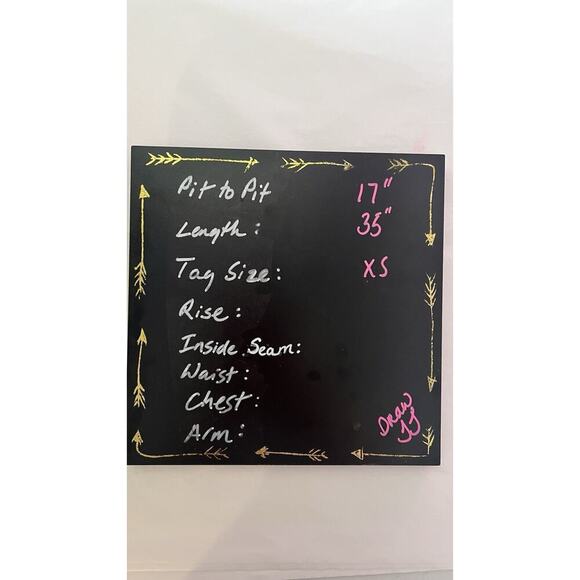 Pit to Pit 17"
Length: 35"
Tag Size: XS
Rise:
Inside Seam:
Waist:
Chest:
Arm:
Draw
JJ